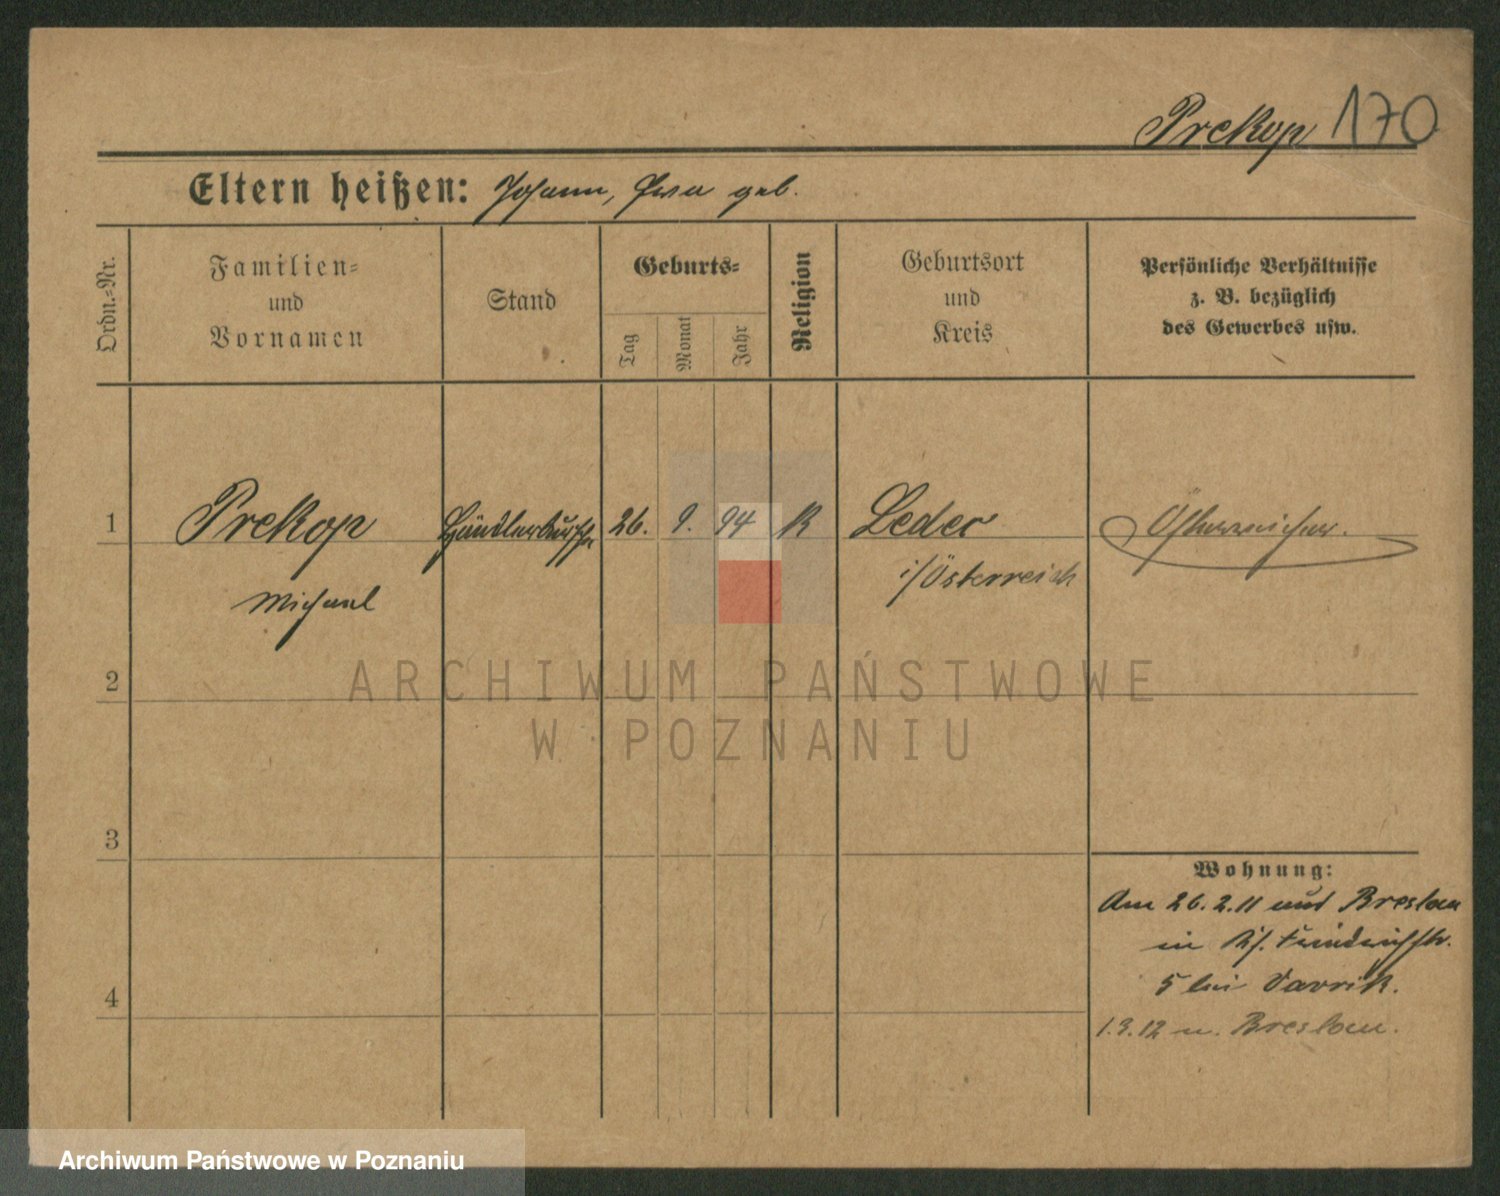 Prekop 170
Eltern heißen: Johann, Eva geb.
Ordn.-Nr.
Familien-
und
Vornamen
Stand
Geburts-
Tag
Monat
Jahr
Religion
Geburtsort
und
Kreis
Persönliche Verhältnisse
z. B. bezüglich
des Gewerbes usw.
1 Prekop Händlerbursche 26. 9. 94 K Leder Österreicher.
Michael i/Österreich
2
3
4
Wohnung:
Am 26.2.11 aus Breslau
in Friedrichstr.
5 bei Vavrik.
1.9.12 n. Breslau.
ARCHIWUM PAŃSTWOWE
W POZNANIU
Archiwum Państwowe w Poznaniu